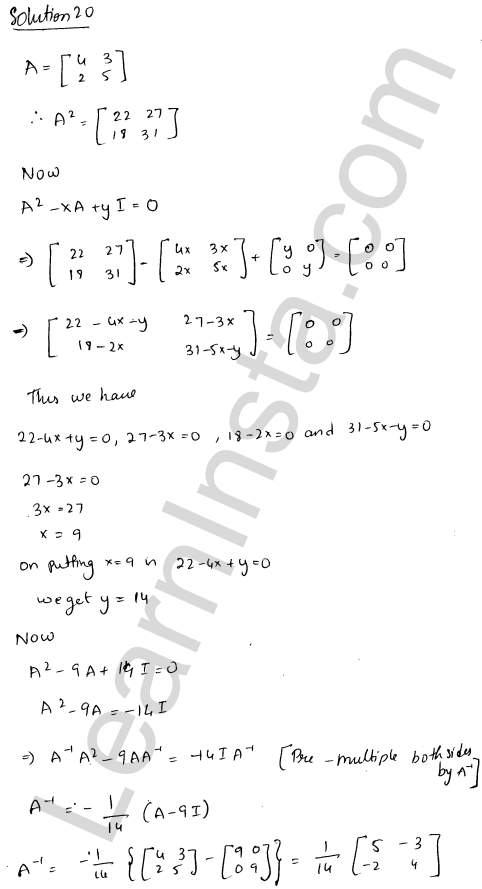 Solution 20
A = [ 4 3
2 5 ]
∴ A² = [ 22 27
18 31 ]
Now
A² - xA + y I = 0
⇒ [ 22 27
18 31 ] - [ 4x 3x
2x 5x ] + [ y 0
0 y ] = [ 0 0
0 0 ]
⇒ [ 22 - 4x - y 27 - 3x
18 - 2x 31 - 5x - y ] = [ 0 0
0 0 ]
Thus we have
22 - 4x + y = 0, 27 - 3x = 0, 18 - 2x = 0 and 31 - 5x - y = 0
27 - 3x = 0
3x = 27
x = 9
on putting x = 9 in 22 - 4x + y = 0
we get y = 14
Now
A² - 9A + 14 I = 0
A² - 9A = -14 I
⇒ A⁻¹ A² - 9AA⁻¹ = -14 I A⁻¹ [Pre - multiple both sides
by A⁻¹]
A⁻¹ = - 1/14 (A - 9I)
A⁻¹ = -1/14 { [ 4 3
2 5 ] - [ 9 0
0 9 ] } = 1/14 [ 5 -3
-2 4 ]
LearnInsta.com